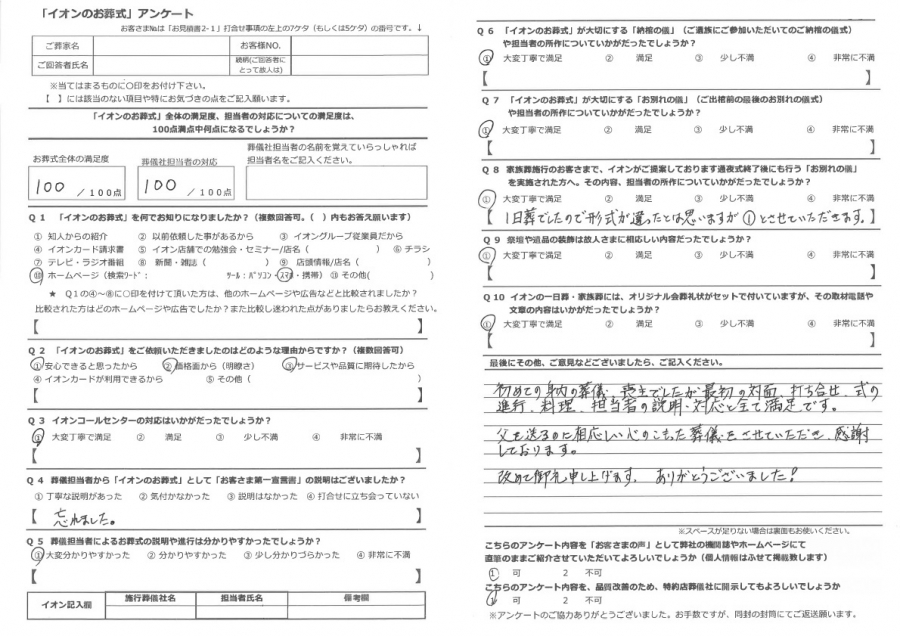 「イオンのお葬式」アンケート
お客さま№は「お見積書2-1」打合せ事項の左上の7ケタ（もしくは5ケタ）の番号です。↓
ご葬家名 お客様NO.
ご回答者氏名 続柄(ご回答者にとって故人は)
※当てはまるものに〇印をお付け下さい。
【　】には該当のない項目や特にお気づきの点をご記入願います。
「イオンのお葬式」全体の満足度、担当者の対応についての満足度は、
100点満点中何点になるでしょうか？
お葬式全体の満足度 葬儀社担当者の対応 葬儀社担当者の名前を覚えていらっしゃれば
担当者名をご記入ください。
100 / 100点 100 / 100点
Q 1 「イオンのお葬式」を何でお知りになりましたか？（複数回答可。(　)内もお答え願います）
① 知人からの紹介 ② 以前依頼した事があるから ③ イオングループ従業員だから
④ イオンカード請求書 ⑤ イオン店舗での勉強会・セミナー/店名（　　） ⑥ チラシ
⑦ テレビ・ラジオ番組 ⑧ 新聞・雑誌（　　） ⑨ 店頭情報/店名（　　）
⑩ ホームページ（検索ﾜｰﾄﾞ： ﾂｰﾙ：ﾊﾟｿｺﾝ・ｽﾏﾎ・携帯） ⑪ その他(　　)
★ Q1の④～⑧に〇印を付けて頂いた方は、他のホームページや広告などと比較されましたか？
比較された方はどのホームページや広告でしたか？また比較し迷われた点がありましたらお教えください。
【　】
Q 2 「イオンのお葬式」をご依頼いただきましたのはどのような理由からですか？（複数回答可）
①安心できると思ったから ②価格面から（明瞭さ） ③サービスや品質に期待したから
④ イオンカードが利用できるから ⑤ その他（　　）
【　】
Q 3 イオンコールセンターの対応はいかがだったでしょうか？
① 大変丁寧で満足 ② 満足 ③ 少し不満 ④ 非常に不満
【　】
Q 4 葬儀担当者から「イオンのお葬式」として「お客さま第一宣言書」の説明はございましたか？
① 丁寧な説明があった ② 気付かなかった ③ 説明はなかった ④ 打合せに立ち会っていない
【 忘れました。 】
Q 5 葬儀担当者によるお葬式の説明や進行は分かりやすかったでしょうか？
①大変分かりやすかった ② 分かりやすかった ③ 少し分かりづらかった ④ 非常に不満
【　】
イオン記入欄 施行葬儀社名 担当者氏名 備考欄
Q 6 「イオンのお葬式」が大切にする「納棺の儀」（ご遺族にご参加いただいてのご納棺の儀式）
や担当者の所作についていかがだったでしょうか？
① 大変丁寧で満足 ② 満足 ③ 少し不満 ④ 非常に不満
【　】
Q 7 「イオンのお葬式」が大切にする「お別れの儀」（ご出棺前の最後のお別れの儀式）
や担当者の所作についていかがだったでしょうか？
① 大変丁寧で満足 ② 満足 ③ 少し不満 ④ 非常に不満
【　】
Q 8 家族葬施行のお客さまで、イオンがご提案しております通夜式終了後にも行う「お別れの儀」
を実施された方へ。その内容、担当者の所作についていかがだったでしょうか？
① 大変丁寧で満足 ② 満足 ③ 少し不満 ④ 非常に不満
【 1日葬でしたので形式が違ったとは思いますが①とさせていただきます。】
Q 9 祭壇や遺品の装飾は故人さまに相応しい内容だったでしょうか？
① 大変丁寧で満足 ② 満足 ③ 少し不満 ④ 非常に不満
【　】
Q 10 イオンの一日葬・家族葬には、オリジナル会葬礼状がセットで付いていますが、その取材電話や
文章の内容はいかがだったでしょうか？
① 大変丁寧で満足 ② 満足 ③ 少し不満 ④ 非常に不満
【　】
最後にその他、ご意見などございましたら、ご記入ください。
初めての身内の葬儀、喪主でしたが最初の対面、打ち合せ、式の
進行、料理、担当者の説明・対応と全て満足です。
父を送るのに相応しい心のこもった葬儀をさせていただき、感謝
しております。
改めて御礼申し上げます。 ありがとうございました！
※スペースが足りない場合は裏面もお使いください。
こちらのアンケート内容を「お客さまの声」として弊社の機関誌やホームページにて
直筆のままご紹介させていただいてよろしいでしょうか（個人情報はふせて掲載致します）
1 可 2 不可
こちらのアンケート内容を、品質改善のため、特約店葬儀社に開示してもよろしいでしょうか
1 可 2 不可
※アンケートのご協力ありがとうございました。お手数ですが、同封の封筒にてご返送願います。